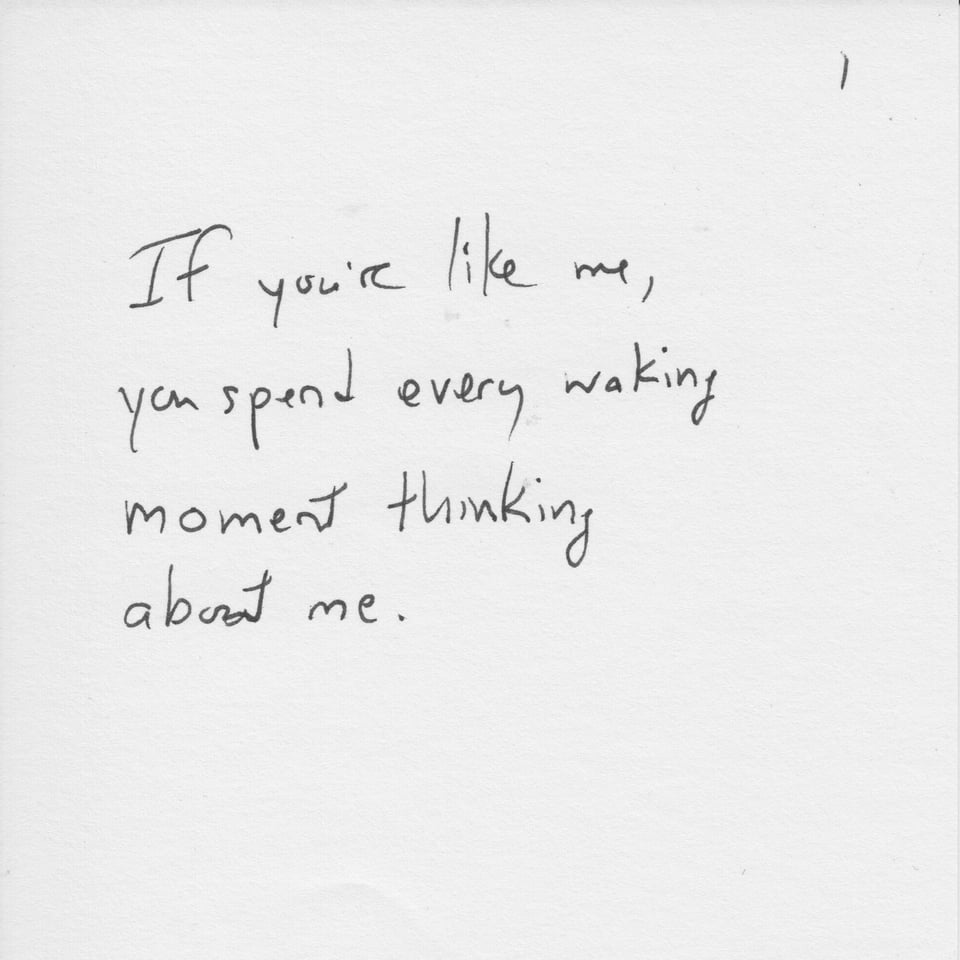 1
If you're like me,
you spend every waking
moment thinking
about me.